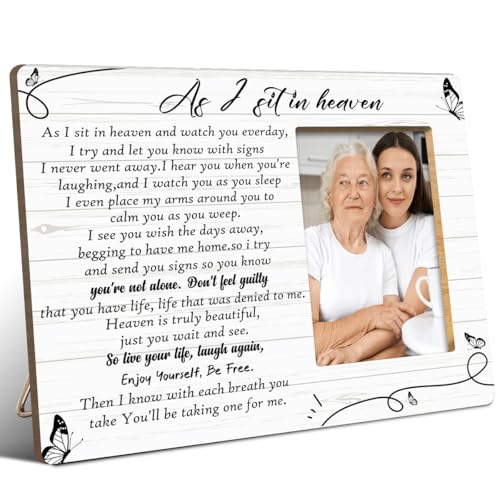 As I sit in heaven
As I sit in heaven and watch you everday,
I try and let you know with signs
I never went away.I hear you when you're
laughing,and I watch you as you sleep
I even place my arms around you to
calm you as you weep.
I see you wish the days away,
begging to have me home.so i try
and send you signs so you know
you're not alone. Don't feel guilty
that you have life, life that was denied to me.
Heaven is truly beautiful,
just you wait and see.
So live your life, laugh again,
Enjoy Yourself, Be Free.
Then I know with each breath you
take You'll be taking one for me.